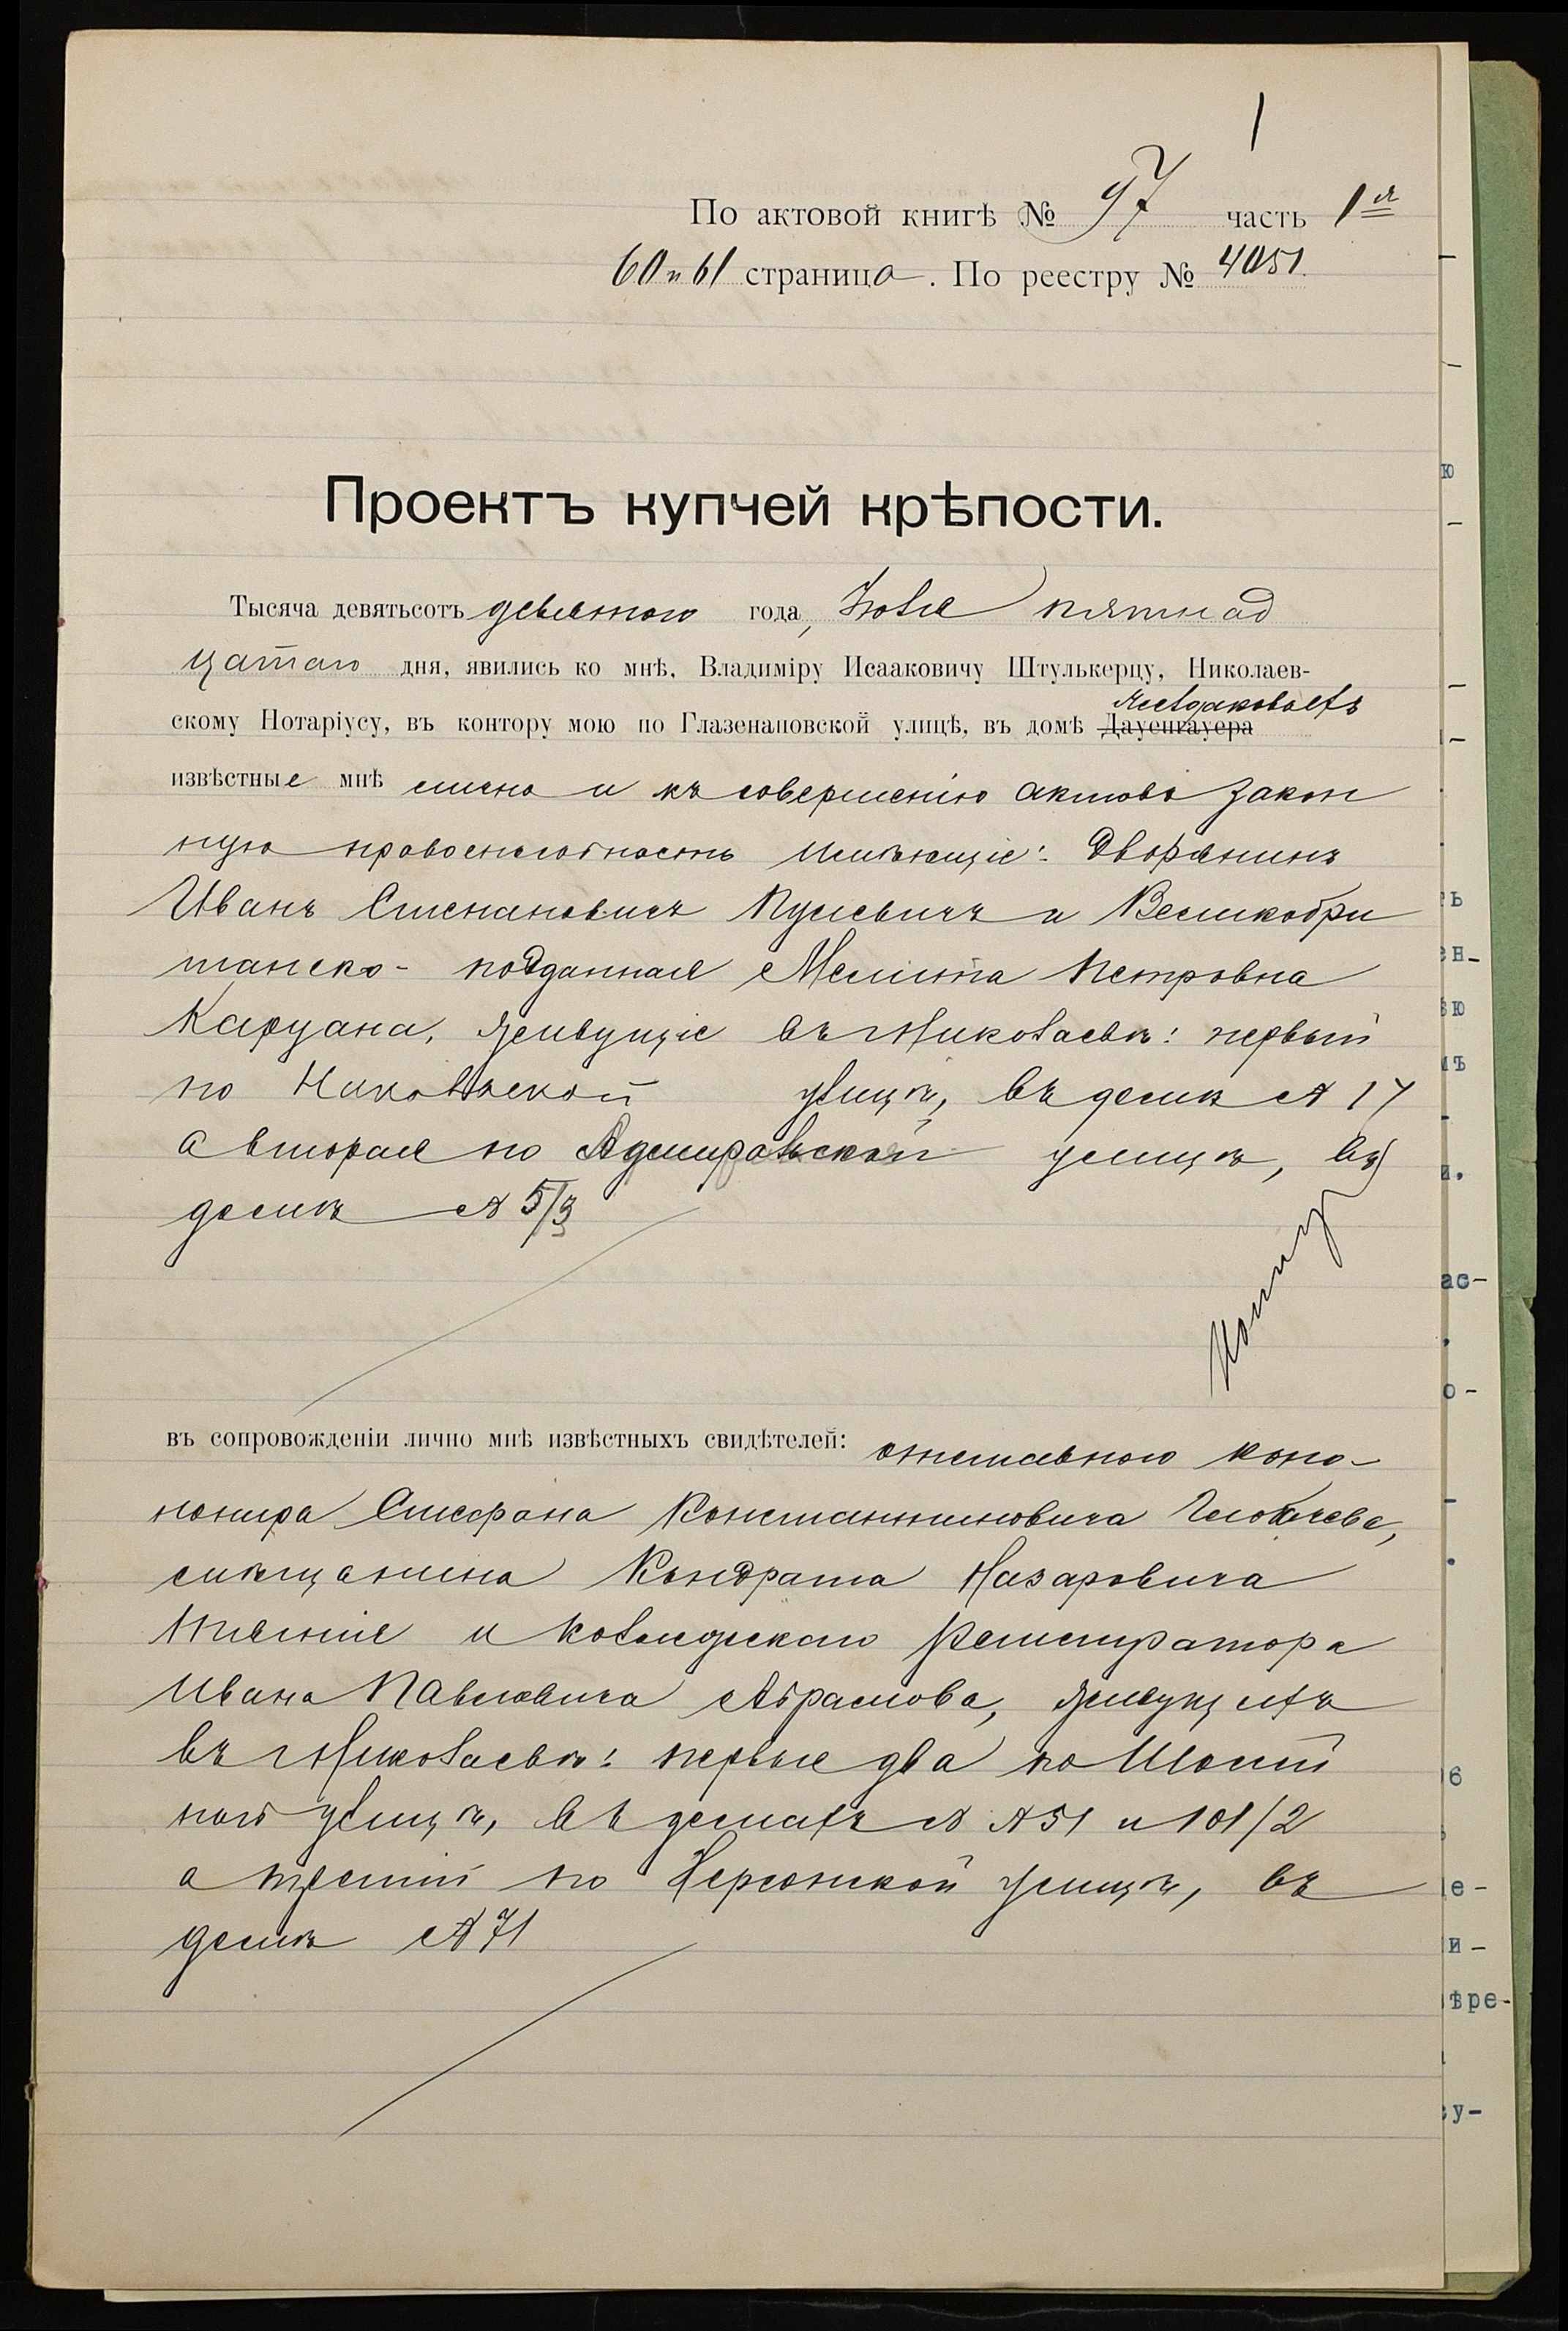 1
По актовой книгѣ № 97 часть 1я
60 и 61 страница. По реестру № 4051.
Проектъ купчей крѣпости.
Тысяча девятьсотъ девятого года, Іюля пятнад
цатаго дня, явились ко мнѣ, Владиміру Исааковичу Штулькерцу, Николаев-
скому Нотаріусу, въ контору мою по Глазенаповской улицѣ, въ домѣ Дауенгауера
извѣстные мнѣ лично и къ совершенію актовъ закон
ную правоспособность имѣющіе: дворянинъ
Иванъ Степановичъ и Великобри
танско-подданная Мелита Петровна
Каруана, живущіе въ г. Николаевѣ: первый
по Никольской улицѣ, въ домѣ № 17
а вторая по Адмиральской улицѣ, въ
домѣ № 5/3
въ сопровожденіи лично мнѣ извѣстныхъ свидѣтелей: отставного кано-
Стефана Константиновича
мѣщанина Кондрата Назаровича
и коллежскаго регистратора
Ивана Павловича Абрамова, живущихъ
въ г. Николаевѣ: первые два по
ной улицѣ, въ домахъ № № 51 и 101/2
а третій по Херсонской улицѣ, въ
домѣ № 71
ю
ъ
ен-
вю
мъ
и.
ас-
о-
6
е-
и-
ѣре-
у-